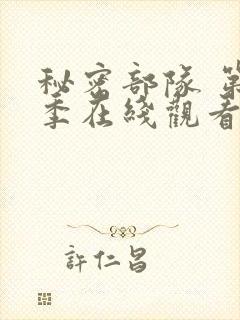 秘密部隊 第
季在綫觀看
許仁昌